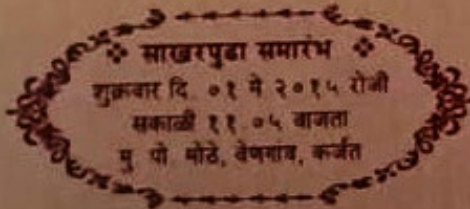 साखरपुडा समारंभ
शुक्रवार दि. ०१ मे २०१५ रोजी
सकाळी ११.०५ वाजता
मु. पो. मोठे, वेणगांव, कर्जत